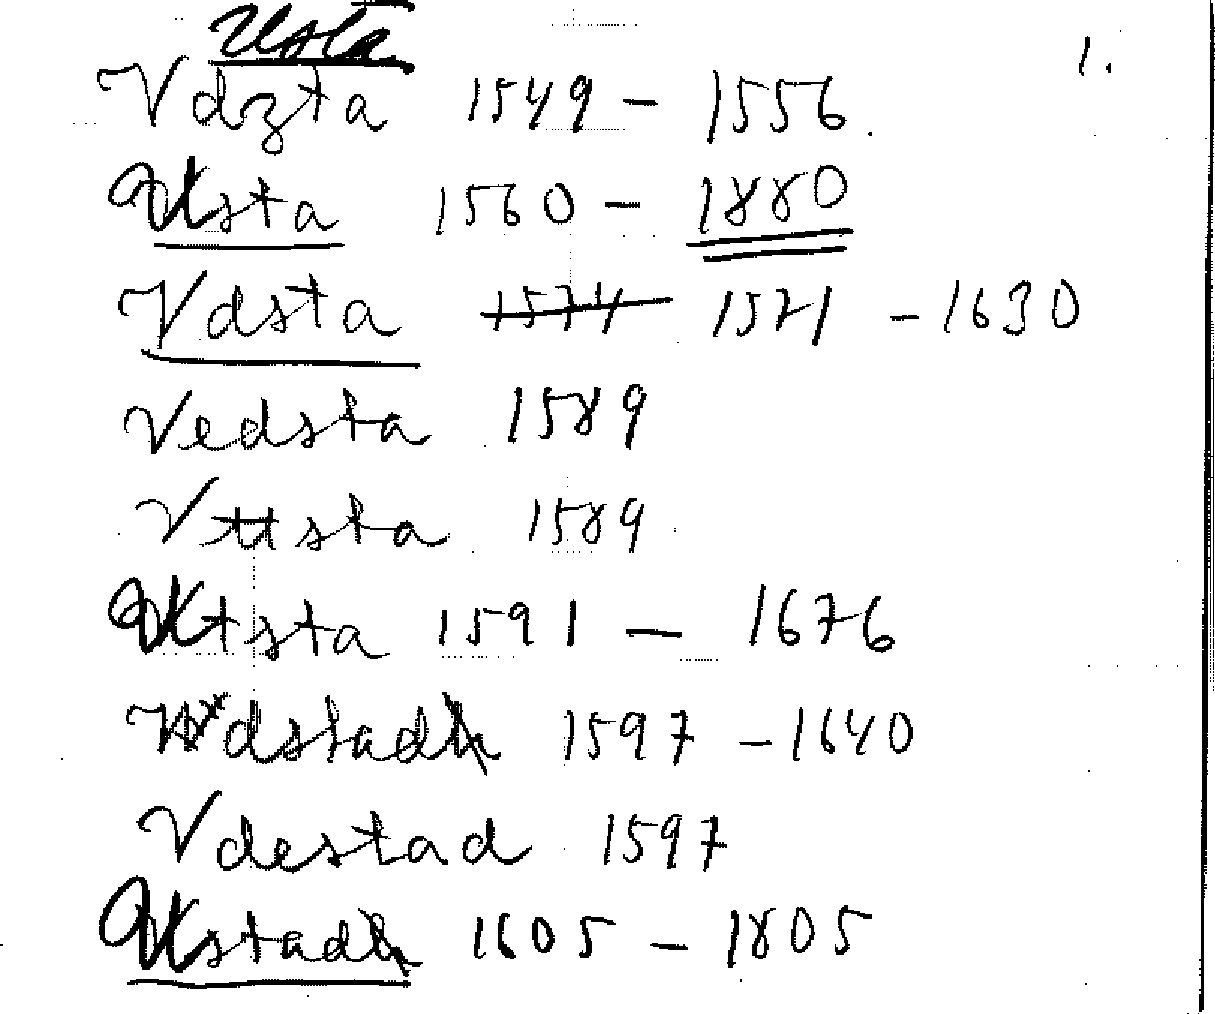 Usta
1.
Vdzta 1549 - 1556.
Usta 1560 - 1880
Vdsta 1574 1571 - 1630
Vedsta 1589
Vttsta 1589
Utsta 1591 - 1676
dstad 1597 - 1640
Vdestad 1597
Ustad 1605 - 1805